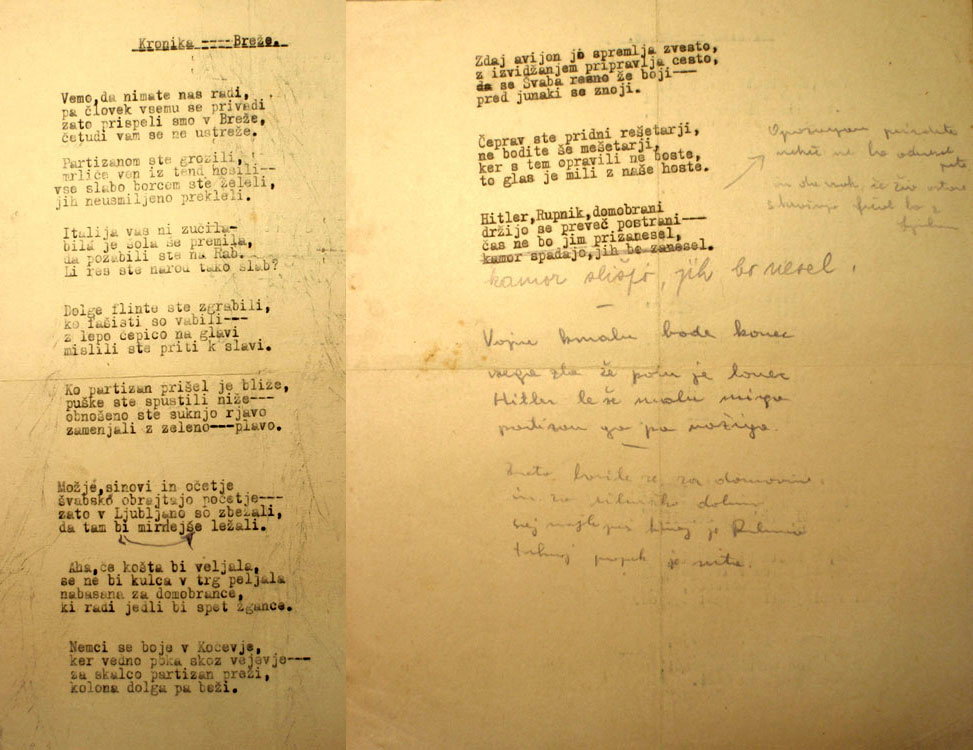 Kronika ---- Breže.
Vemo,da nimate nas radi,
pa človek vsemu se privadi
zato prispeli smo v Breže,
četudi vam se ne ustreže.
Partizanom ste grozili,
mrliče ven iz tend nosili--
vse slabo borcem ste želeli,
jih neusmiljeno prekleli.
Italija vas ni zučila-
bila je šola se premila,
da pozabili ste na Rab.
Li res ste narod tako slab?
Dolge flinte ste zgrabili,
ko fašisti so vabili---
z lepo čepico na glavi
mislili ste priti k slavi.
Ko partizan prišel je bliže,
puške ste spustili niže---
obnošeno ste suknjo rjavo
zamenjali z zeleno---plavo.
Možje,sinovi in očetje
švabsko obrajtajo početje---
zato v Ljubljano so zbežali,
da tam bi mirnejše ležali.
Aha,če košta bi veljala,
se ne bi kulca v trg peljala
nabasana za domobrance,
ki radi jedli bi spet žgance.
Nemci se boje v Kočevje,
ker vedno poka skoz vejevje---
za skalco partizan preži,
kolona dolga pa beži.
Zdaj avijon jo spremlja zvesto,
z izvidžanjem pripravlja cesto,
da se Švaba resno že boji---
pred junaki se znoji.
Čeprav ste pridni rešetarji,
ne bodite še mešetarji,
ker s tem opravili ne boste,
to glas je mili z naše hoste.
Hitler,Rupnik,domobrani
držijo se preveč postrani---
čas ne bo jim prizanesel,
kamor spadajo,jih be zanesel.
kamor slišjo, jih bo nesel.
Vojne kmalu bode konec
vsega zla že poln je lonec
Hitler le še malu miga
partizan ga pa
za domovino,
in za
je
je